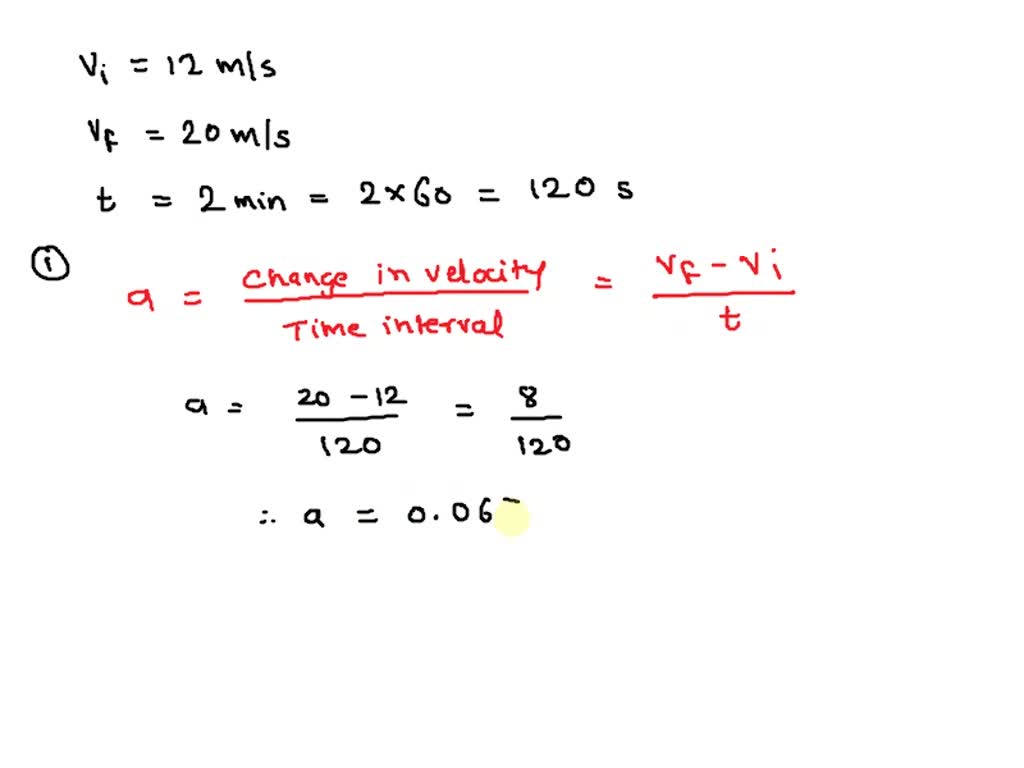 Vi = 12 m/s
Vf = 20 m/s
t = 2 min = 2 × 60 = 120 s
(i)
a = Change in velocity / Time interval = Vf - Vi / t
a = 20 - 12 / 120 = 8 / 120
∴ a = 0.06